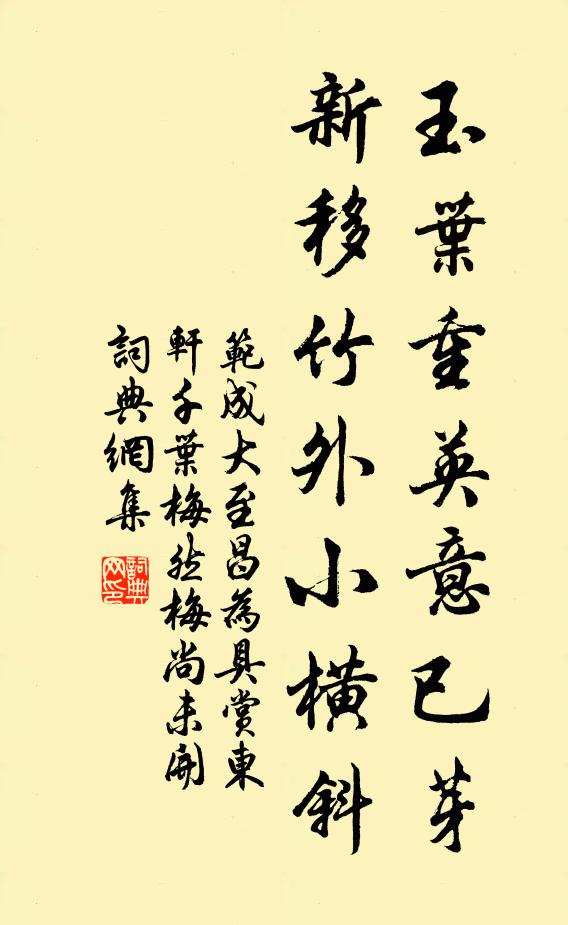 玉葉重英意已芽
新移竹外小橫斜
範成大至昌為具賞東
軒千葉梅然梅尚未開
詞典網集
詞典網印